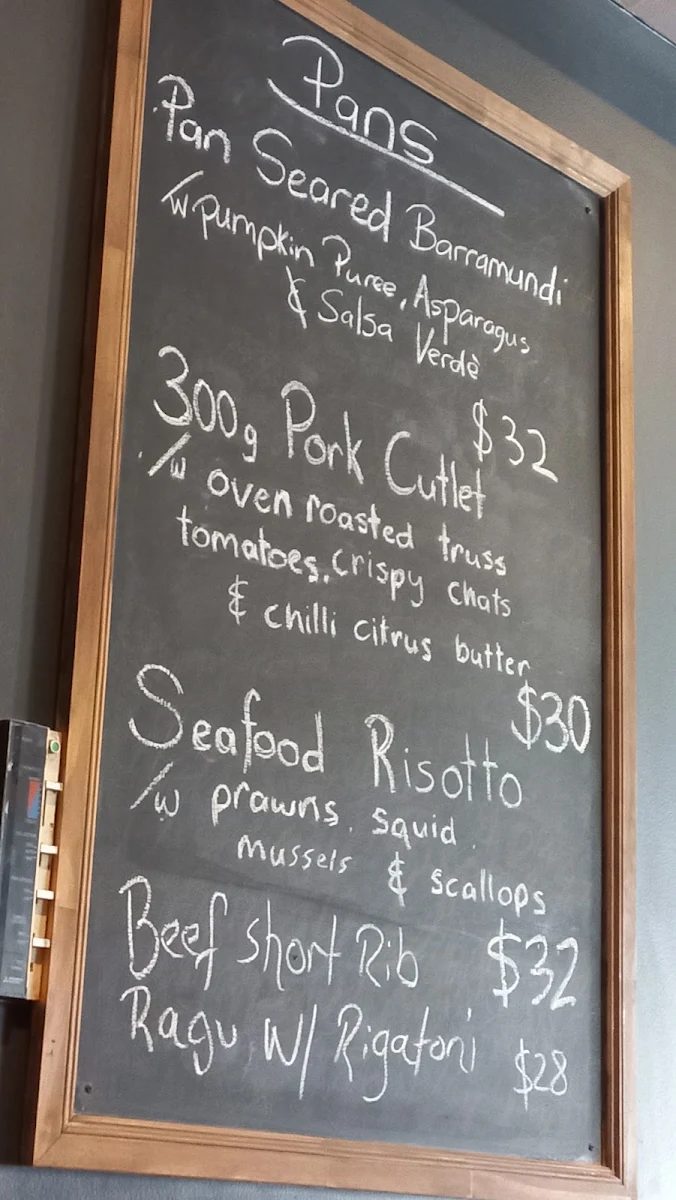 Pans
Pan Seared Barramundi
/w pumpkin Puree, Asparagus
& Salsa Verdè
$32
300g Pork Cutlet
/w oven roasted truss
tomatoes, crispy chats
& chilli citrus butter
$30
Seafood Risotto
/w prawns, squid,
mussels & scallops
$32
Beef short Rib
Ragu w/ Rigatoni
$28